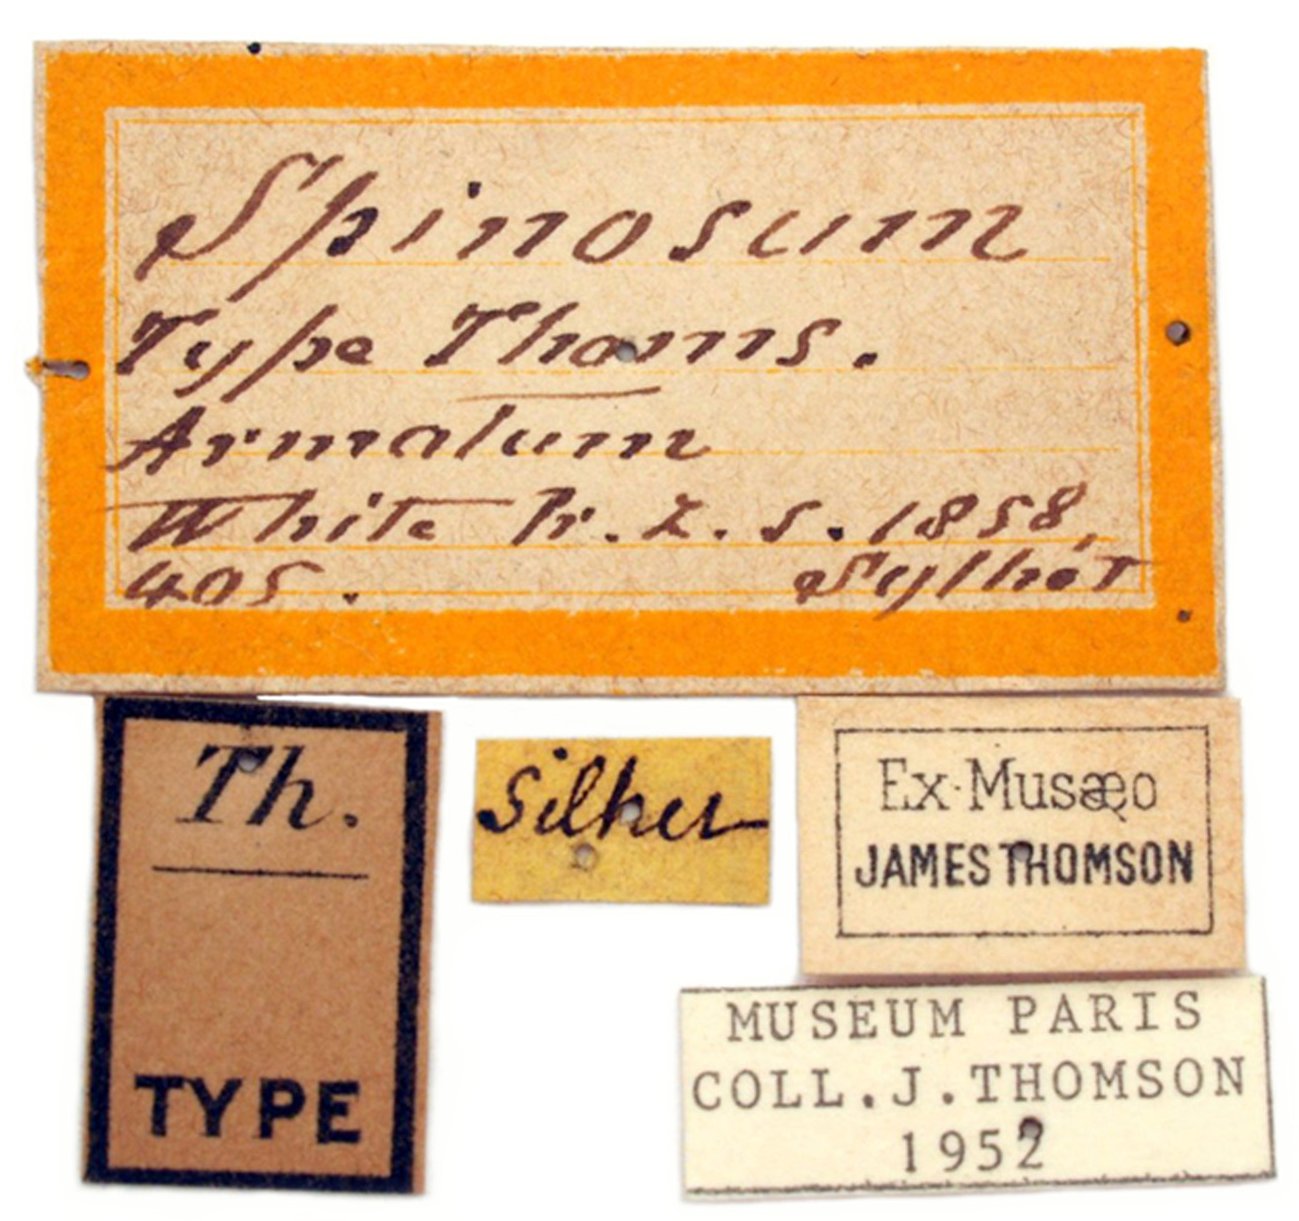 Spinosum
Type Thoms.
Armatum
White Pr. Z. S. 1858,
405. Sylhet
Th.
TYPE
Silhet
Ex-Musæo
JAMES THOMSON
MUSEUM PARIS
COLL.J.THOMSON
1952